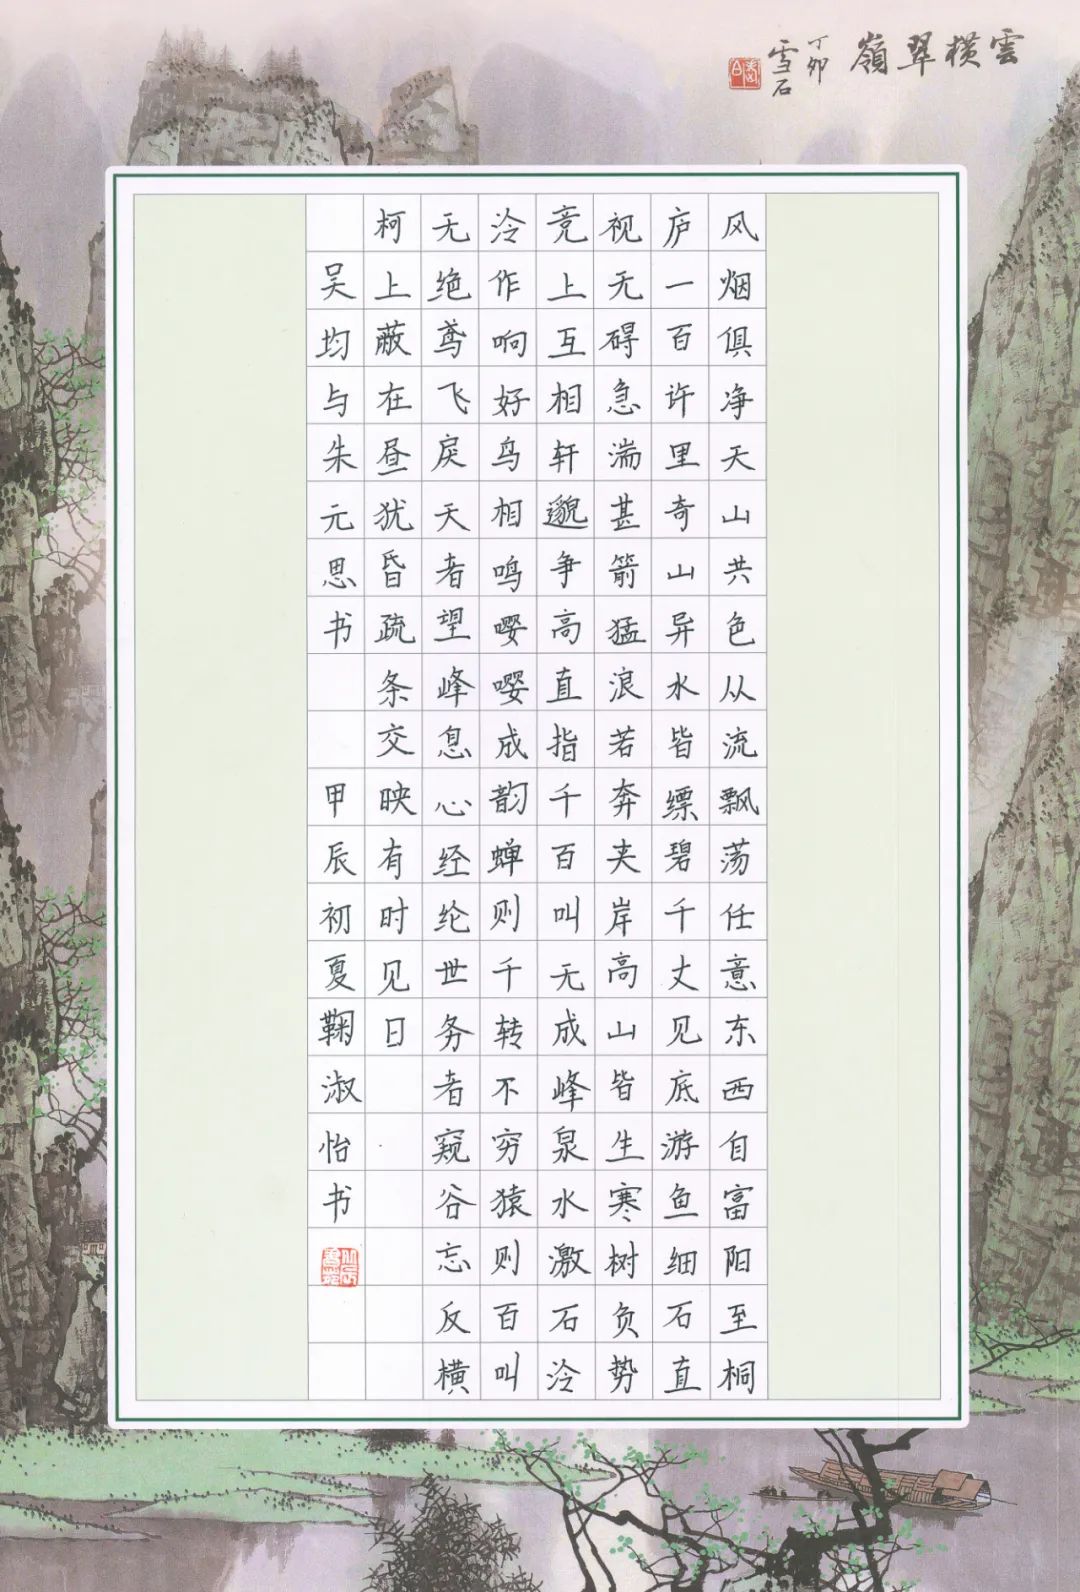 雲横翠嶺
丁卯
雪石
风烟俱净天山共色从流飘荡任意东西自富阳至桐
庐一百许里奇山异水皆缥碧千丈见底游鱼细石直
视无碍急湍甚箭猛浪若奔夹岸高山皆生寒树负势
竞上互相轩邈争高直指千百叫无成峰泉水激石泠
泠作响好鸟相鸣嘤嘤成韵蝉则千转不穷猿则百叫
无绝鸢飞戾天者望峰息心经纶世务者窥谷忘反横
柯上蔽在昼犹昏疏条交映有时见日
吴均与朱元思书 甲辰初夏鞠淑怡书